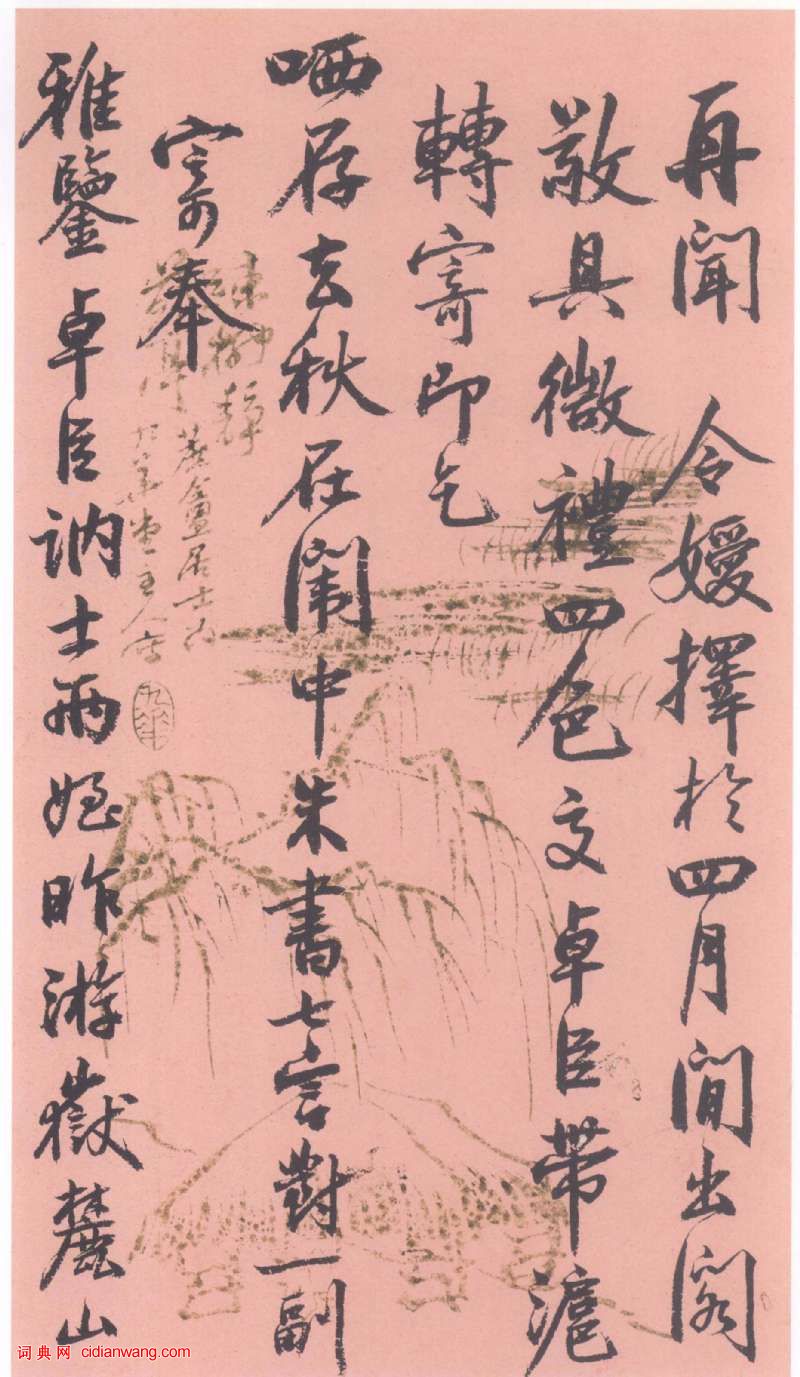 再聞　令嬡擇於四月間出閣
敬具微禮四色交卓臣帶滬
轉寄即乞
哂存去秋在闈中朱書七言對一副
寄奉
雅鑒卓臣訥士兩姪昨游嶽麓山
词典网 cidianwang.com